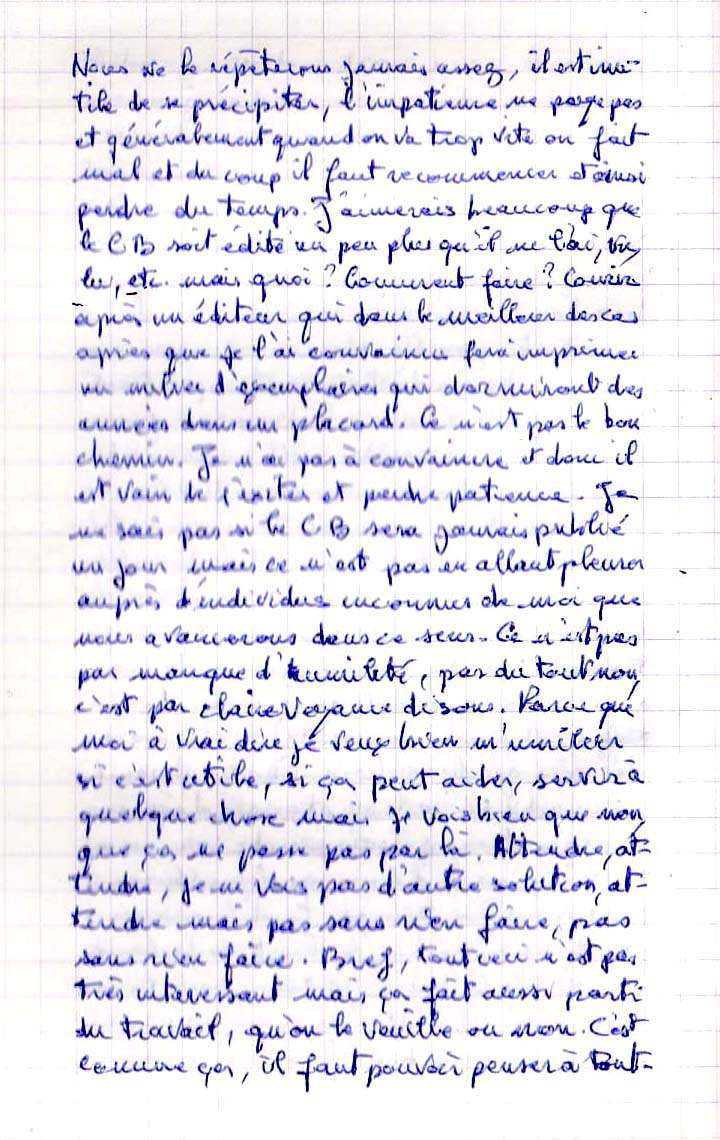 Nous ne le répéterons jamais assez, il est inu-
tile de se précipiter, l'impatience ne paye pas
et généralement quand on va trop vite on fait
mal et du coup il faut recommencer et ainsi
perdre du temps. J'aimerais beaucoup que
le CB soit édité un peu plus qu'il ne l'ai, vu,
lu, etc. mais quoi ? Comment faire ? Courir
après un éditeur qui dans le meilleur des cas
après que je l'ai convaincu fera imprimer
un millier d'exemplaires qui dormiront des
années dans un placard. Ce n'est pas le bon
chemin. Je n'ai pas à convaincre et donc il
est vain de s'exciter et perdre patience. Je
ne sais pas si le CB sera jamais publié
un jour mais ce n'est pas en allant pleurer
auprès d'individus inconnus de moi que
nous avancerons dans ce sens. Ce n'est pas
par manque d'humilité, pas du tout non,
c'est par clairevoyance disons. Parce que
moi à vrai dire je veux bien m'humilier
si c'est utile, si ça peut aider, servir à
quelque chose mais je vois bien que non,
que ça ne passe pas par là. Attendre, at-
tendre, je ne vois pas d'autre solution, at-
tendre mais pas sans rien faire, pas
sans rien faire. Bref, tout ceci n'est pas
très interessant mais ça fait aussi parti
du travail, qu'on le veuille ou non. C'est
comme ça, il faut pouvoir penser à tout-